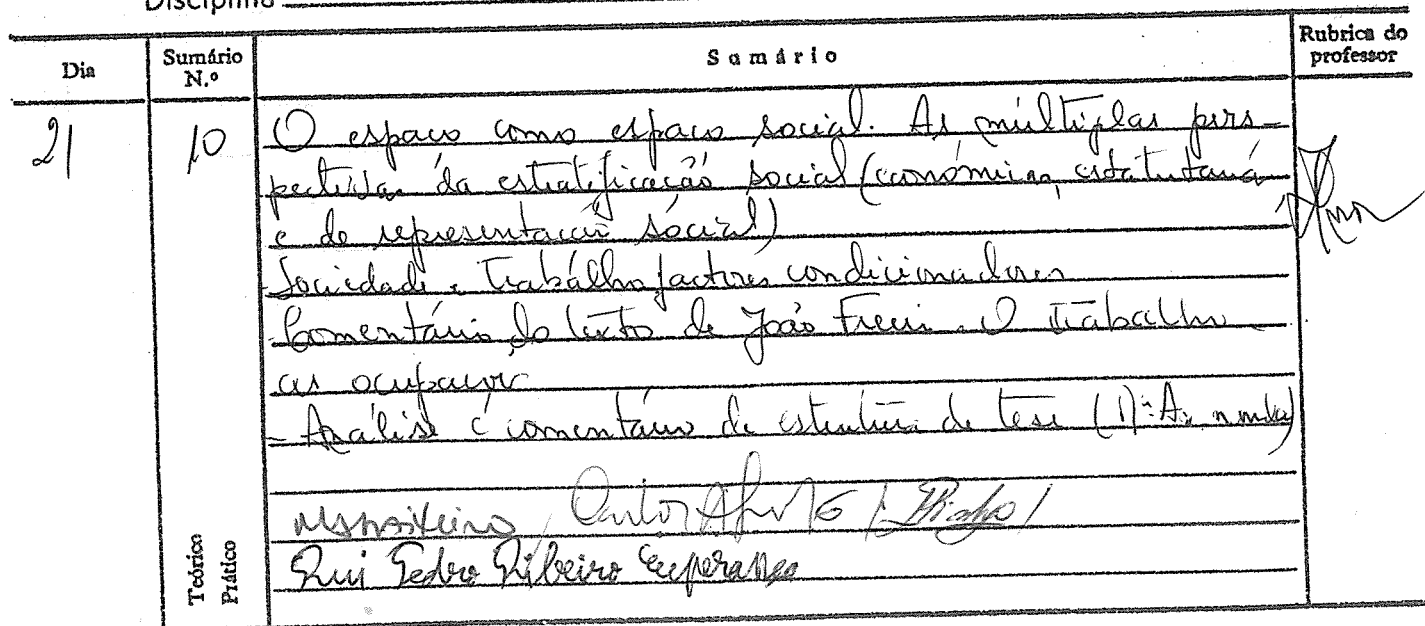 Disciplina
Dia Sumário N.º Sumário Rubrica do professor
21 10 O espaço como espaço social. As múltiplas pers-
pectivas da estratificação social (económica, estatutária
e de representação social)
Sociedade e Trabalho factores condicionadores
- Comentário do texto de João Freire - O Trabalho
as ocupações
- Análise e comentário de estrutura de tese
Teórico
Prático
Rui Pedro Ribeiro Esperança